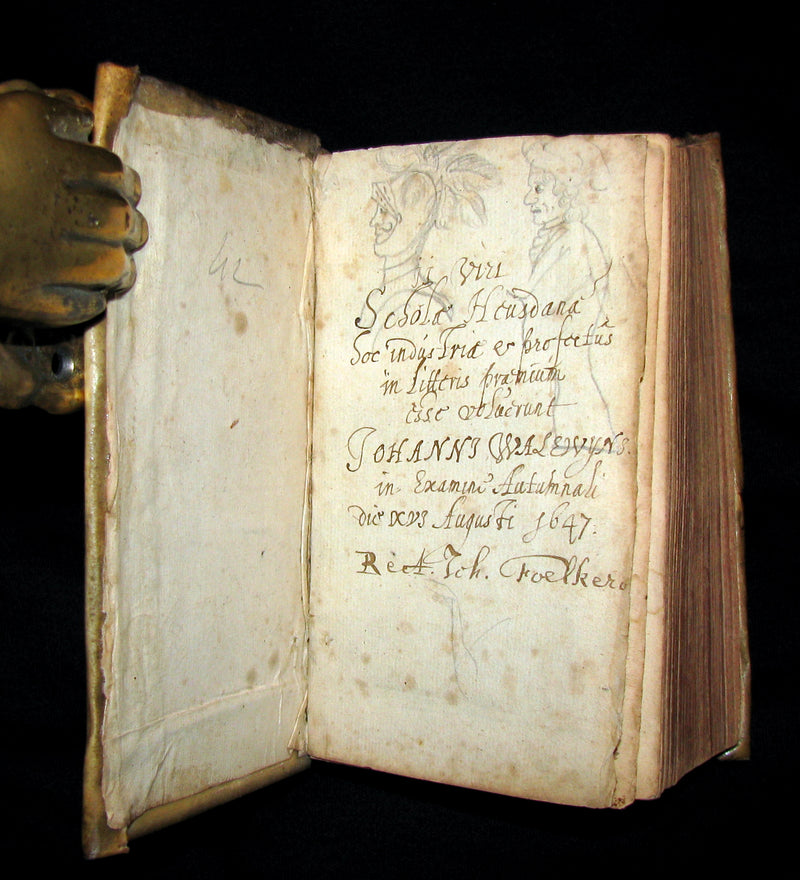 ij Viri
Scholæ Heusdanæ
hoc industriæ & profectus
in litteris præmium
esse voluerunt
JOHANNI WALEWYNS.
in Examine Autumnali
die xvj Augusti 1647.
Rect. Joh. Foelkers